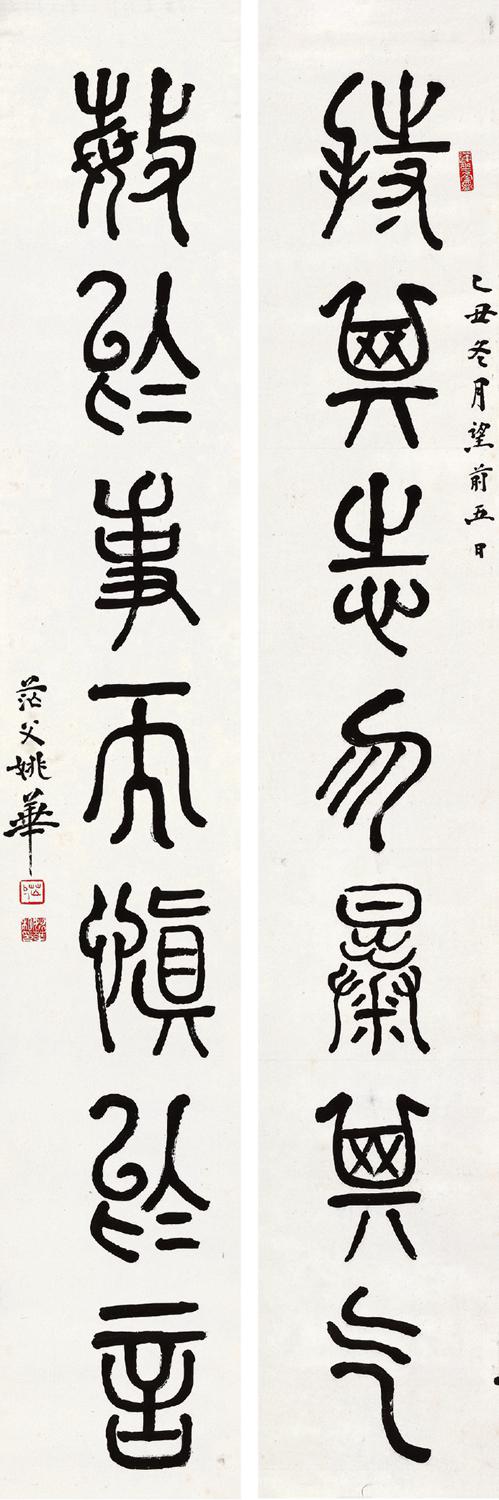 乙丑冬月望前五日
持其志勿暴其气
敏於事而慎於言
茫父姚華